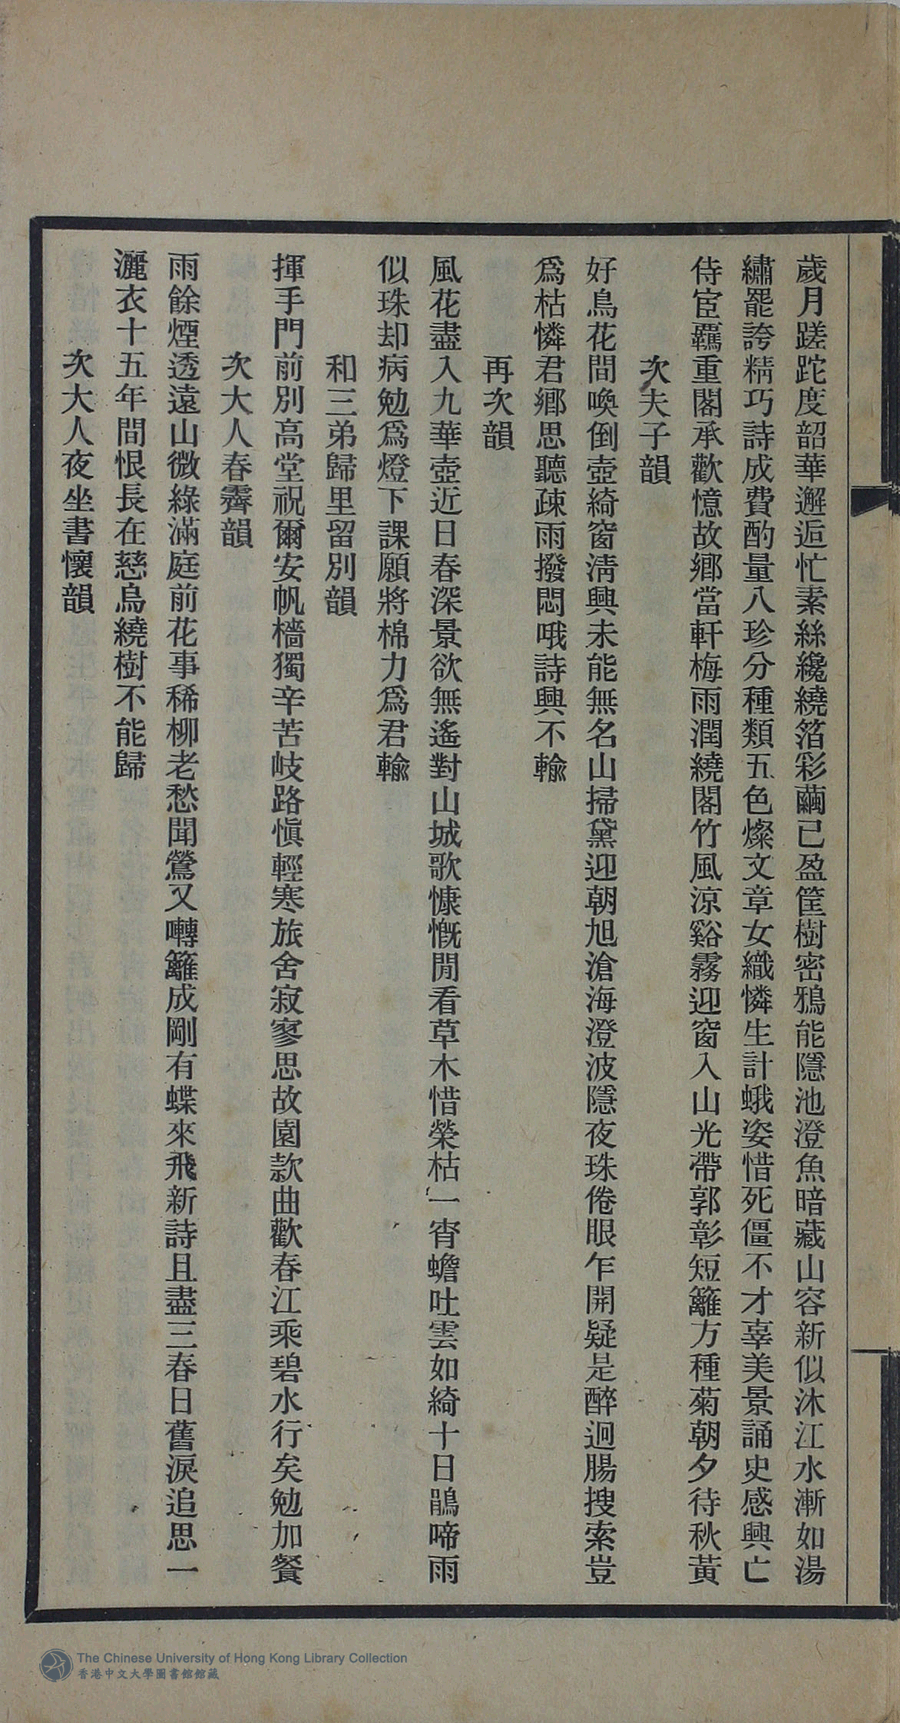 歲月蹉跎度韶華邂逅忙素絲纔繞箔彩繭已盈筐樹密鴉能隱池澄魚暗藏山容新似沐江水漸如湯
繡罷誇精巧詩成費酌量八珍分種類五色燦文章女織憐生計蛾姿惜死僵不才辜美景誦史感興亡
侍宦羈重閣承歡憶故鄉當軒梅雨潤繞閣竹風涼谿霧迎窗入山光帶郭彰短籬方種菊朝夕待秋黃
次夫子韻
好鳥花間喚倒壺綺窗淸興未能無名山掃黛迎朝旭滄海澄波隱夜珠倦眼乍開疑是醉迴腸搜索豈
爲枯憐君鄉思聽疎雨撥悶哦詩興不輸
再次韻
風花盡入九華壺近日春深景欲無遙對山城歌慷慨閒看草木惜榮枯一宵蟾吐雲如綺十日鵑啼雨
似珠却病勉爲燈下課願將棉力爲君輸
和三弟歸里留別韻
揮手門前別高堂祝爾安帆檣獨辛苦岐路愼輕寒旅舍寂寥思故園款曲歡春江乘碧水行矣勉加餐
次大人春霽韻
雨餘煙透遠山微綠滿庭前花事稀柳老愁聞鶯又囀籬成剛有蝶來飛新詩且盡三春日舊淚追思一
灑衣十五年間恨長在慈烏繞樹不能歸
次大人夜坐書懷韻
The Chinese University of Hong Kong Library Collection
香港中文大學圖書館館藏